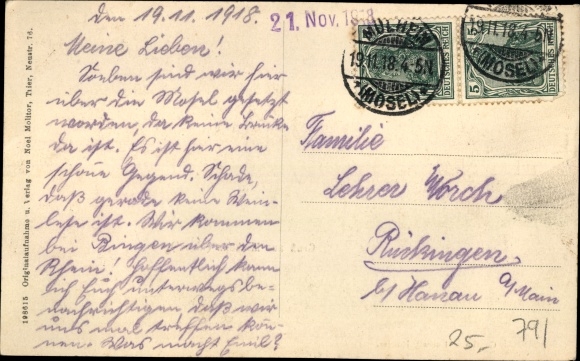 den 19.11.1918.
21. Nov. 1918
Meine Lieben!
Soeben sind wir hier
über die Mosel gesetzt
worden, da keine Brücke
da ist. Es ist hier eine
schöne Gegend. Schade,
daß gerade keine Wein-
lese ist. Wir kommen
bei Bingen über den
Rhein! Hoffentlich kann
ich Euch unterwegs be-
nachrichtigen daß wir
uns mal treffen kön-
nen. Was macht Emil?
MÜLHEIM
19.11.18.4-5N
(MOSEL)
DEUTSCHES REICH
19.11.18.4-5N
(MOSEL)
5
DEUTSCHES REICH
Familie
Lehrer Worch
Rückingen
b/ Hanau a/Main
25,- 791
198615 Originalaufnahme u. Verlag von Noel Molitor, Trier, Neustr. 76.